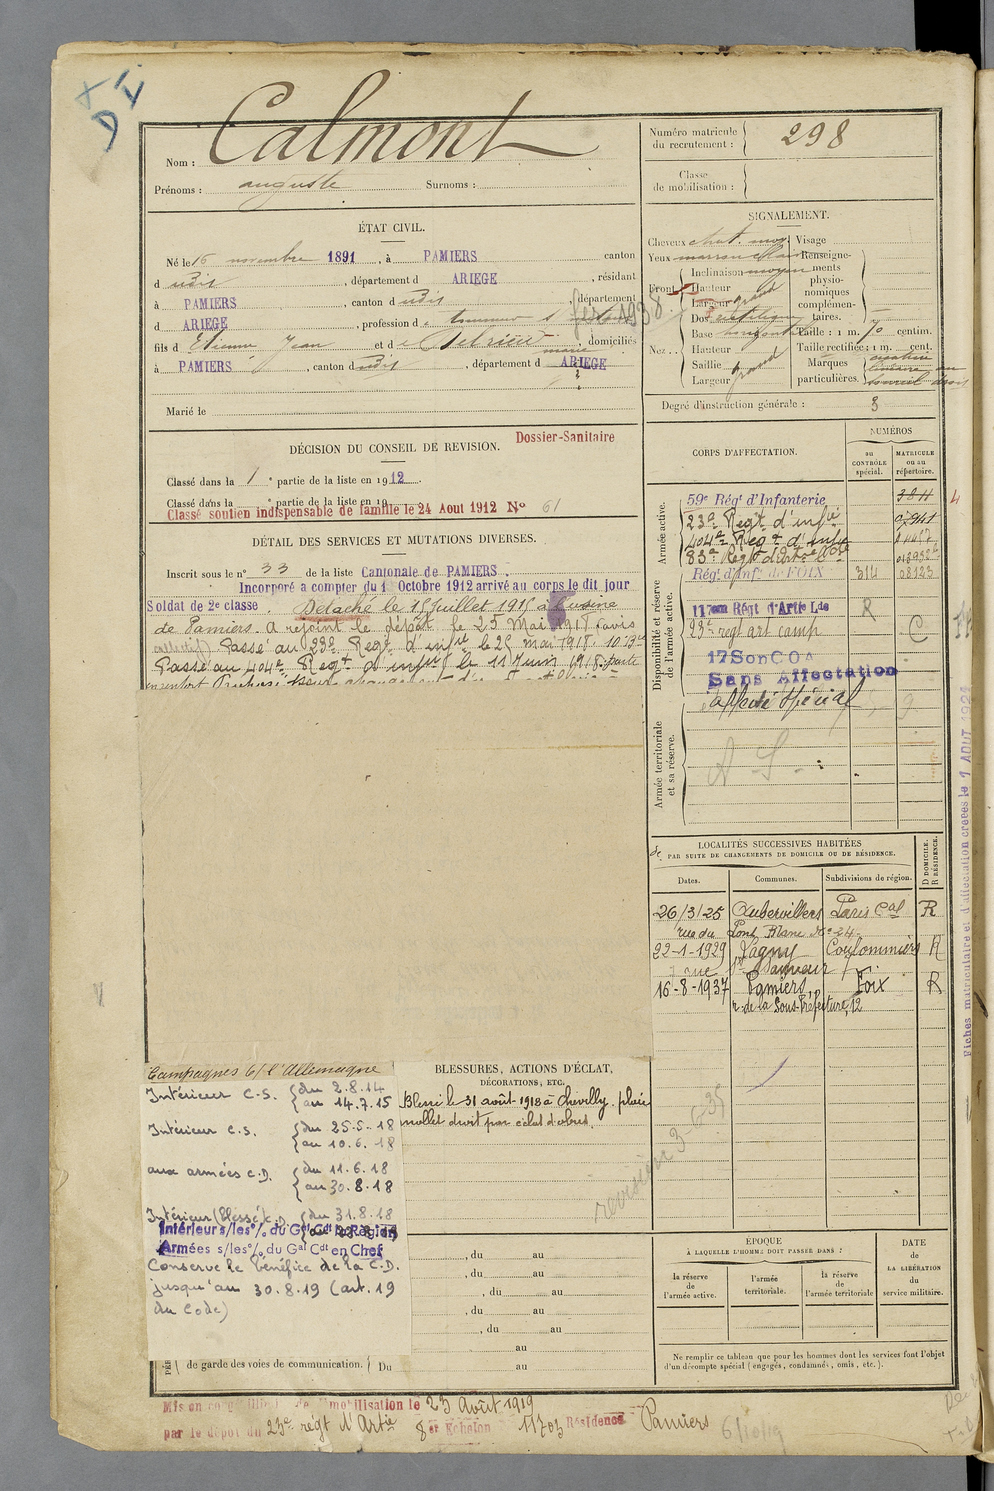 DI
Nom : Calmont
Prénoms : auguste Surnoms :
Numéro matricule du recrutement : 298
Classe de mobilisation :
ÉTAT CIVIL.
Né le 16 novembre 1891, à PAMIERS canton
d udit, département d ARIEGE, résidant
à PAMIERS, canton d udit, département
d ARIEGE, profession d
fils d Etienne Jean et d, domiciliés
à PAMIERS, canton dudit, département d ARIEGE
Marié le
fév 1938
SIGNALEMENT.
Cheveux chat. moy Visage
Yeux marron clair Renseigne-
Front Inclinaison moyen ments
Hauteur physio-
Largeur grand nomiques
Nez .. Dos rectiligne complémen-
taires.
Base horizontal Taille : 1 m. 70 centim.
Hauteur Taille rectifiée : 1 m. cent.
Saillie Marques cicatrice
Largeur grand particulières. linéaire au
sourcil droit
Degré d'instruction générale : 3
DÉCISION DU CONSEIL DE REVISION. Dossier-Sanitaire
Classé dans la 1e partie de la liste en 1912.
Classé dans la e partie de la liste en 19
Classé soutien indispensable de famille le 24 Aout 1912 No 61
DÉTAIL DES SERVICES ET MUTATIONS DIVERSES.
Inscrit sous le n° 33 de la liste Cantonale de PAMIERS.
Incorporé a compter du 1 Octobre 1912 arrivé au corps le dit jour
Soldat de 2e classe. Détaché le 15 Juillet 1915 à l'usine
de Pamiers. A rejoint le dépôt le 25 Mai 1918 (avis
collectif) Passé au 23e Regt d'infie le 25 mai 1918.
Passé au 404e Regt d'infie le 11 Juin 1918.
CORPS D'AFFECTATION.
NUMÉROS
au CONTRÔLE spécial.
MATRICULE ou au répertoire.
Armée active.
59e Régt d'Infanterie
23e Regt d'infie
404e Regt d'infie
83e Regt d'Artie Lde
Disponibilité et réserve de l'armée active.
Régt d'Infie de FOIX 314 08123
117em Régt d'Artie Lde R
23e regt art camp C
17 Son C O A
Sans Affectation
Affecté Spécial
Armée territoriale et sa réserve.
A - S -
LOCALITÉS SUCCESSIVES HABITÉES
PAR SUITE DE CHANGEMENTS DE DOMICILE OU DE RÉSIDENCE.
Dates. Communes. Subdivisions de région. D DOMICILE. R RÉSIDENCE.
26/3/25 Aubervilliers Paris Cal R
rue du Pont Blanc No 24
22-1-1929 Lagny Coulommiers R
rue St Sauveur
16-8-1937 Pamiers, Foix R
r. de la Sous-Préfecture, 12
Fiches matriculaire et d'affectation créées le 7 AOUT 1924
Campagnes C/ l'Allemagne
Intérieur C.S. du 2.8.14
au 14.7.15
Intérieur C.S. du 25-5-18
au 10.6.18
aux armées C.D. du 11.6.18
au 30.8.18
Intérieur (blessé) C.D. du 31.8.18
Intérieur s/les o/. du Gal Cdt la Région
Armées s/les o/. du Gal Cdt en Chef
Conserve le bénéfice de la C.D.
jusqu'au 30.8.19 (art. 19
du Code)
BLESSURES, ACTIONS D'ÉCLAT,
DÉCORATIONS, ETC.
Blessé le 31 août 1918 à Chevilly. plaie
mollet droit par éclat d'obus.
revision 3-6-35
, du au
, du au
, du au
, du au
, du au
au
de garde des voies de communication. Du au
ÉPOQUE
À LAQUELLE L'HOMME DOIT PASSER DANS :
la réserve de l'armée active.
l'armée territoriale.
la réserve de l'armée territoriale
DATE de LA LIBÉRATION du service militaire.
Ne remplir ce tableau que pour les hommes dont les services font l'objet
d'un décompte spécial (engagés, condamnés, omis, etc.).
Mis en congé illimité de démobilisation le 23 Août 1919
par le dépôt du 23e régt d'Artie 8er Echelon 11703 Résidence Pamiers
6/10/19